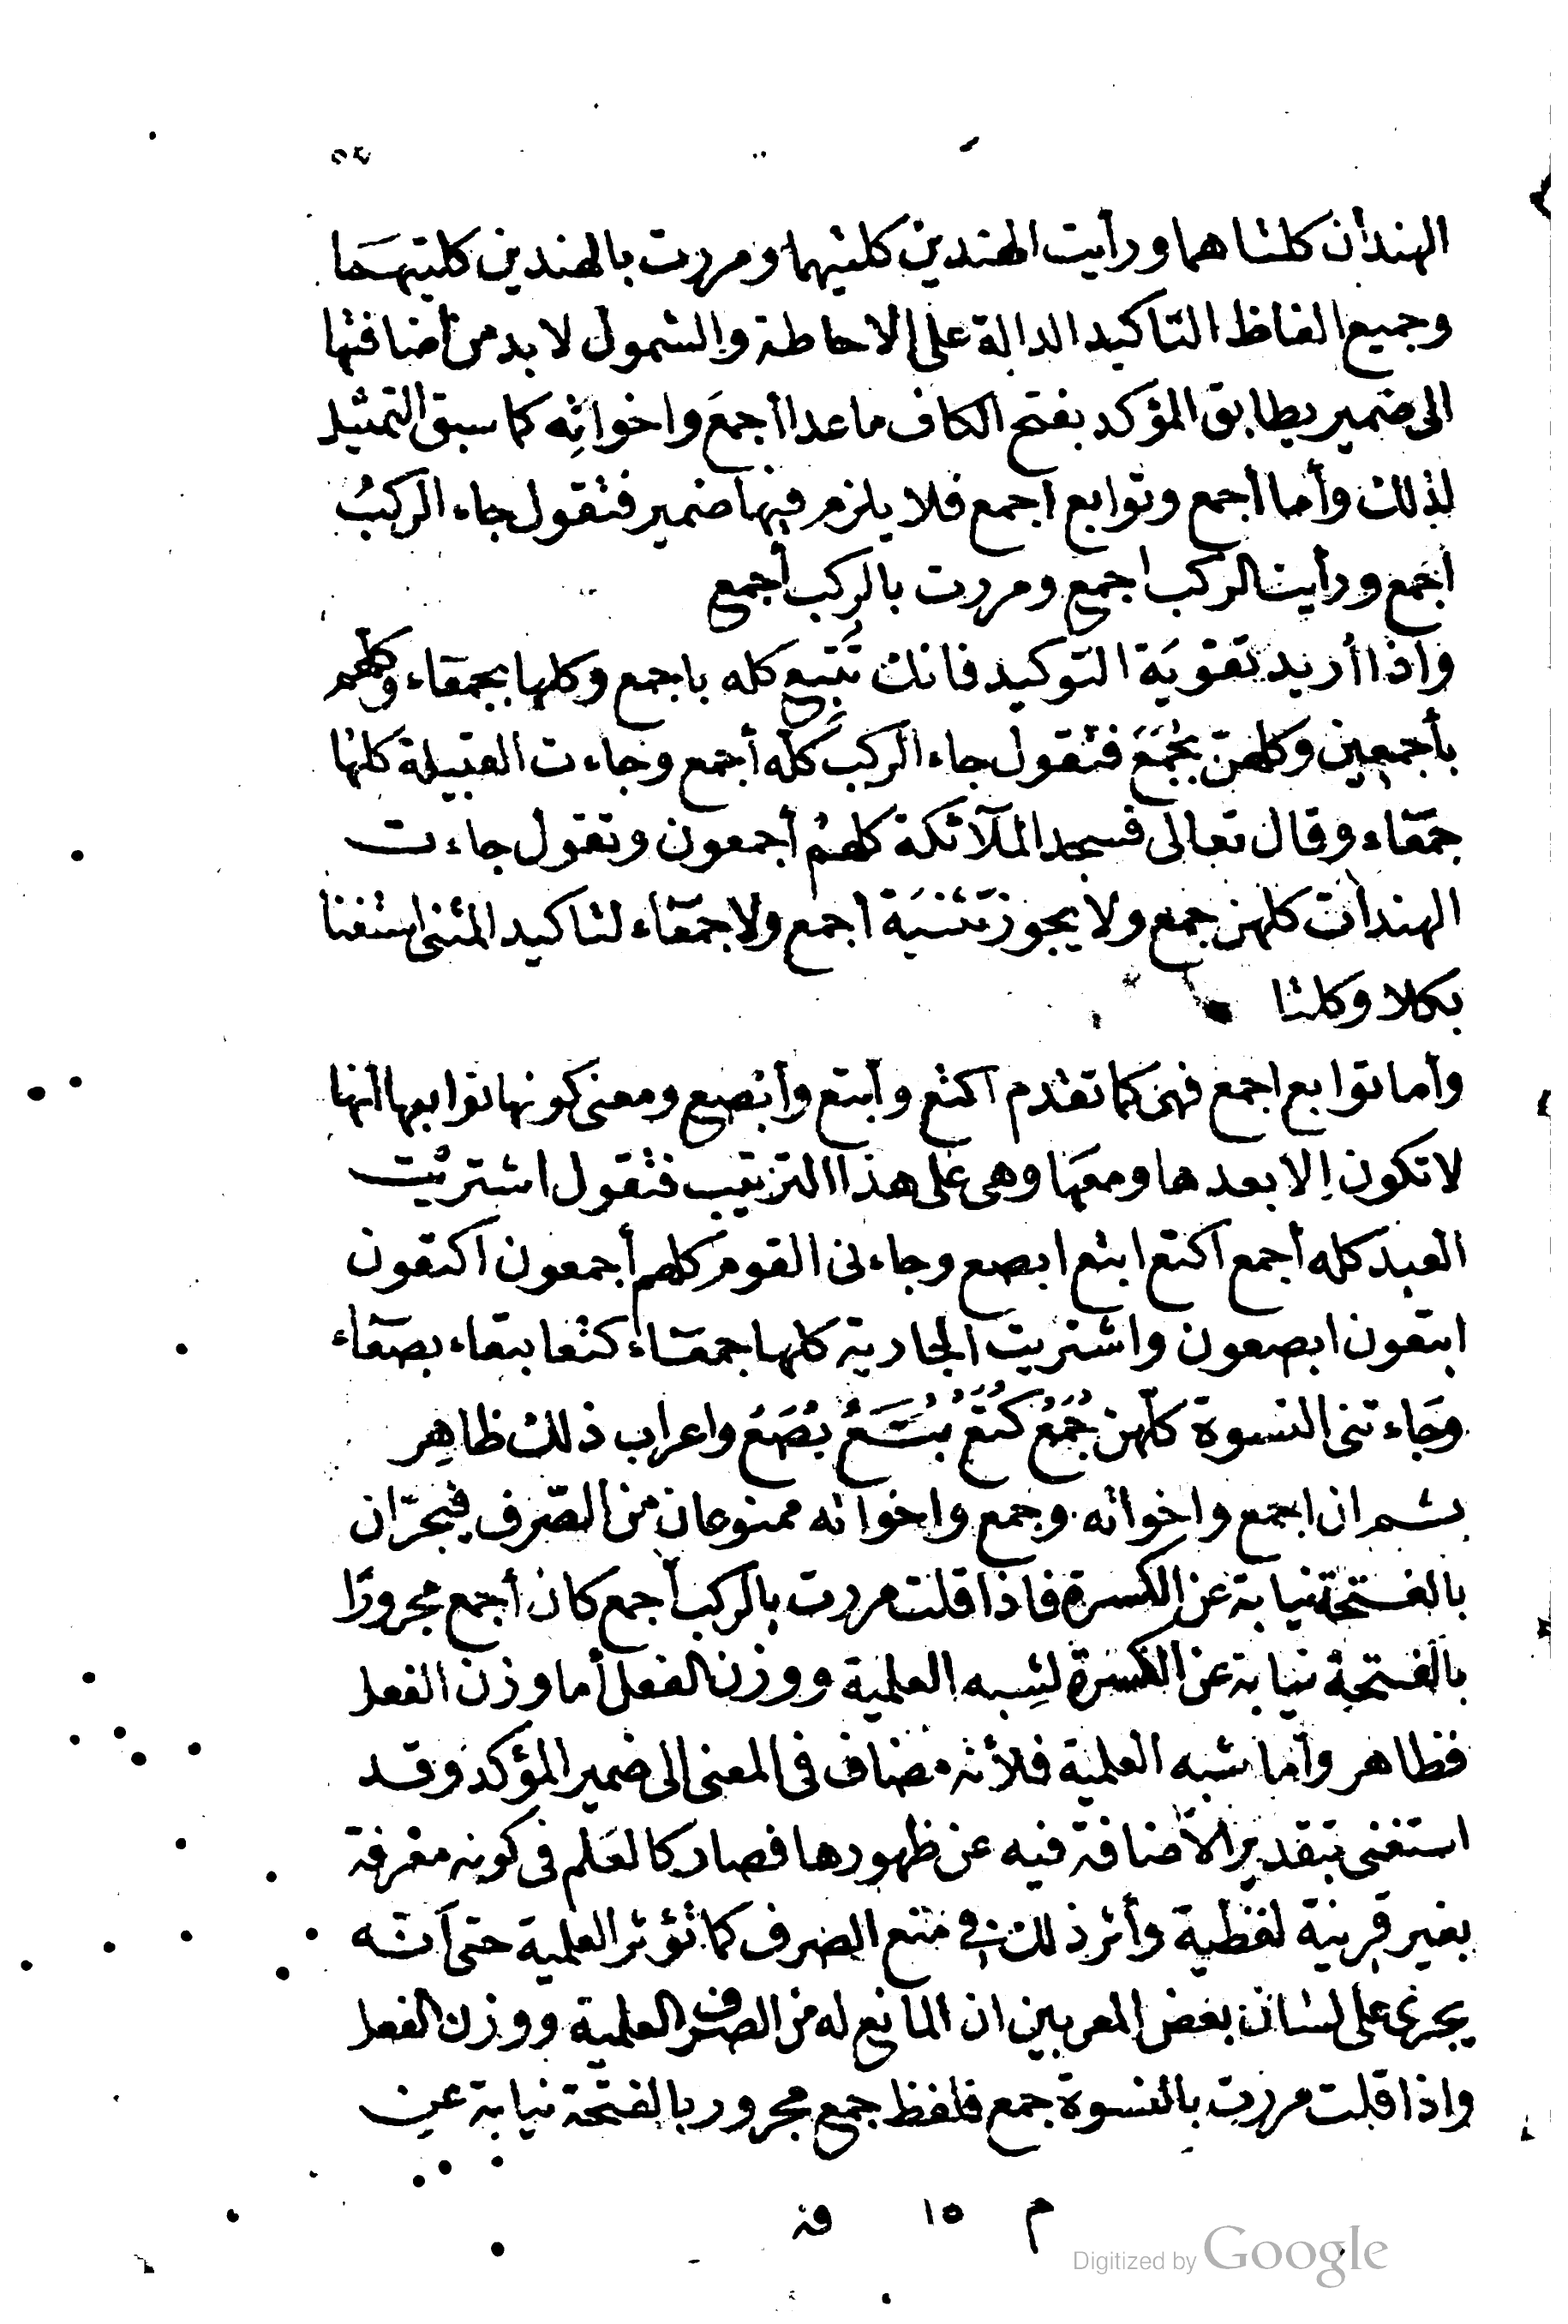 الهندان كلتاهما ورأيت الهندين كلتيهما ومررت بالهندين كلتيهما
وجميع الفاظ التاكيد الدالة على الاحاطة والشمول لا بد من اضافتها
الى ضمير يطابق المؤكد بفتح الكاف ما عدا أجمعَ واخواتِه كما سبق التمثيل
لذلك وأما أجمع وتوابع اجمع فلا يلزم فيها ضمير فتقول جاء الركبُ
اجمع ورأيت الركب اجمع ومررت بالركب أجمع
واذا أريد تقويَة التوكيد فانك تُتبع كله باجمع وكلها بجمعاء وكلهم
بأجمعين وكلهنّ بجُمَعَ فتقول جاء الركبُ كله أجمع وجاءت القبيلة كلها
جمعاء وقال تعالى فسجد الملآئكة كلهمُ أجمعون وتقول جاءت
الهندات كلهن جمع ولا يجوز تثنيَة اجمع ولا جمعاء لتاكيد المثنى استغنا
بكلا وكلتا
وأما توابع اجمع فهى كما تقدم اكتع وأبتع وأبصع ومعنى كونها توابعها انها
لا تكون إلا بعدها ومعها وهى على هذا الترتيب فتقول اشتريت
العبد كله أجمع اكتع ابتع ابصع وجاءنى القوم كلهم أجمعون اكتعون
ابتعون ابصعون واشتريت الجارية كلها جمعاء كتعا بتعاء بصعاء
وجاءتنى النسوة كلهن جُمَعُ كُتَعُ بُتَعُ بُصَعُ واعراب ذلك ظاهِر
ثم ان اجمع واخواته وجمع واخواته ممنوعان من الصّرف فيجرّان
بالفتحة نيابة عن الكسرة فاذا قلت مررت بالركب أجمع كان أجمع مجرورًا
بالفتحة نيابة عن الكسرة لشِبه العلمية ووزن الفعل أما وزن الفعل
فظاهر وأما شبه العلمية فلأنه مضاف فى المعنى الى ضمير المؤكد وقد
استغنى بتقدير الاضافة فيه عن ظهورها فصار كالعَلم فى كونه معْرفة
بغير قرينة لفظية وأثر ذلك فى منع الصرف كما تؤثر العلمية حتى انه
يجرى على لسان بعض المعربين ان المانع له من الصرف العلمية ووزن الفعل
واذا قلت مررت بالنسوة جمع فلفظ جمع مجرور بالفتحة نيابة عن
م ١٥ فه
Digitized by Google